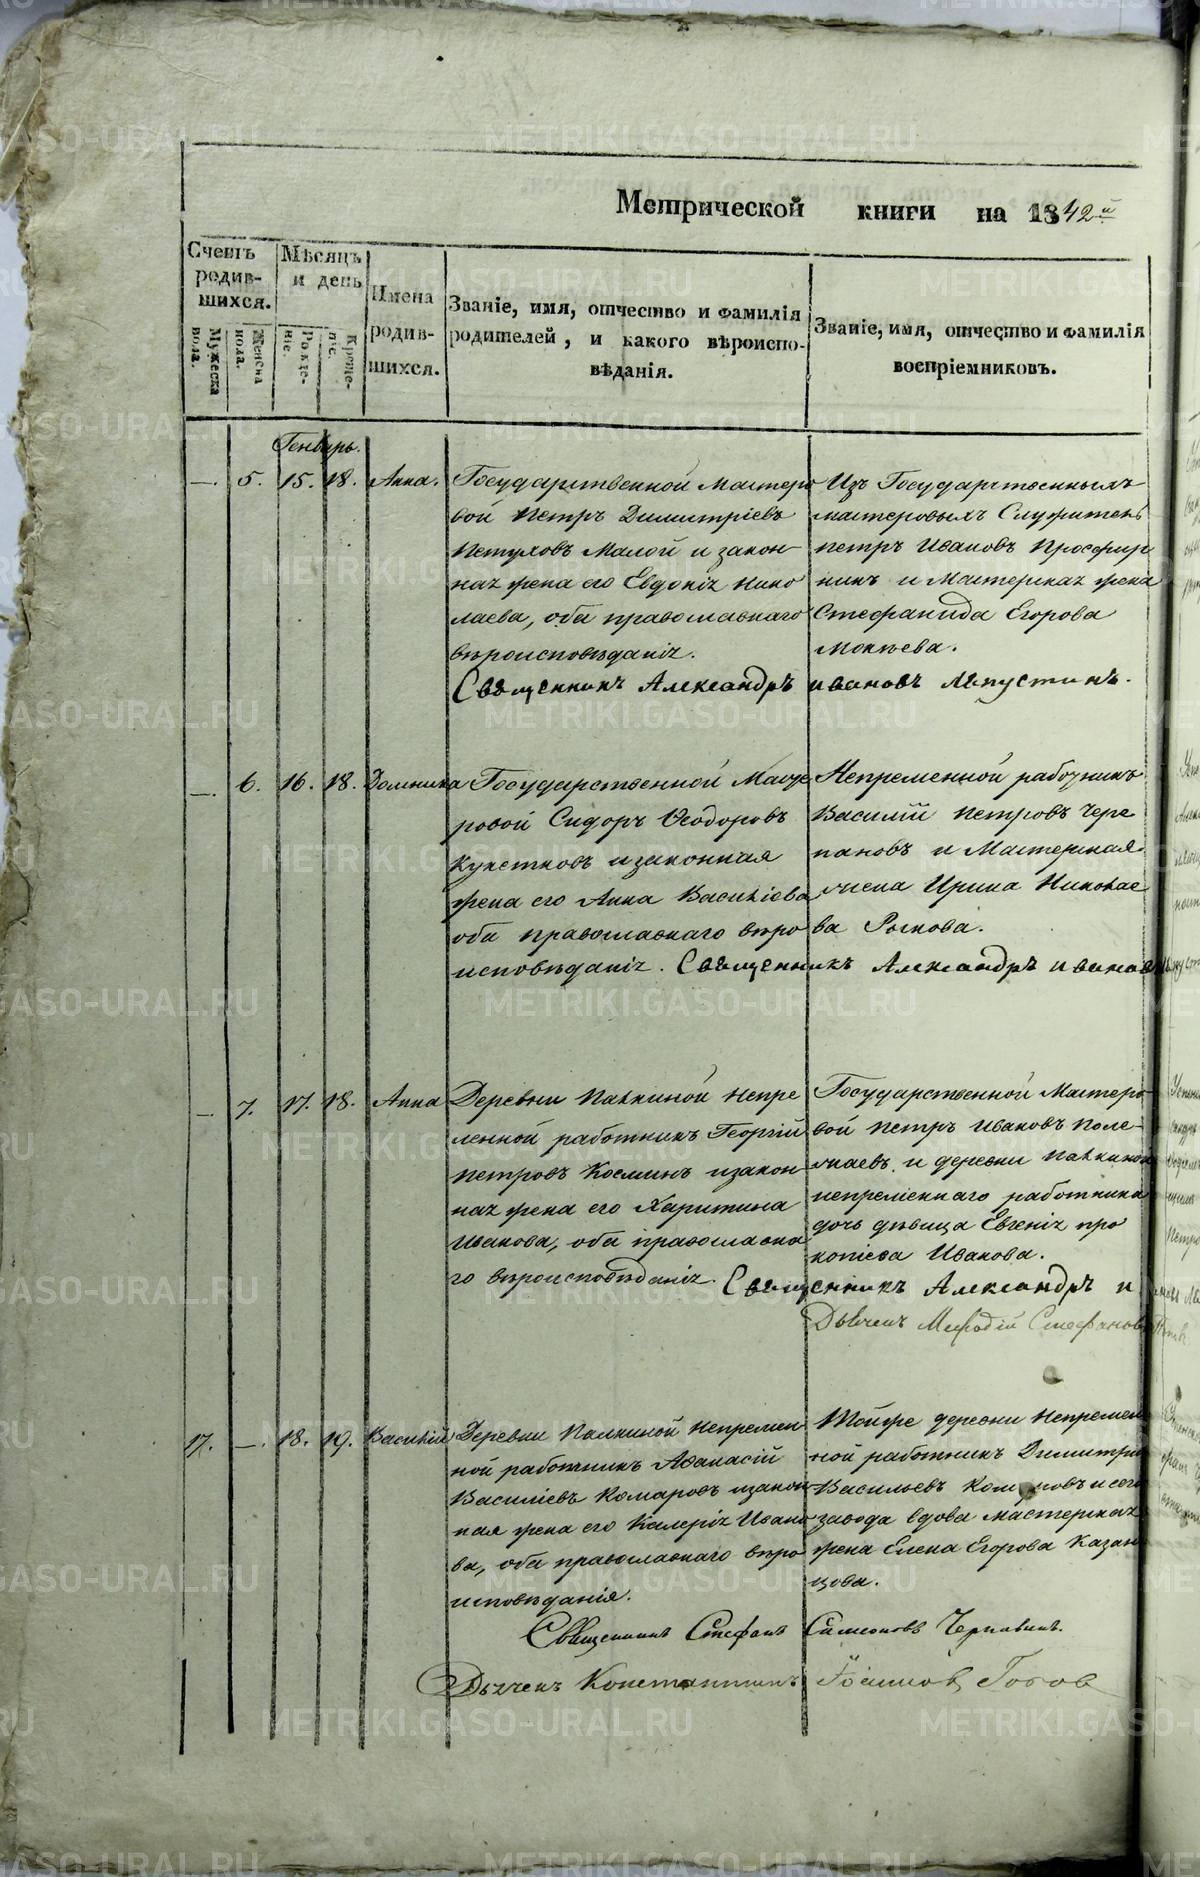 Метрической книги на 1842й
Счетъ родив-шихся.
Мужеска пола.
Женска пола.
Мѣсяцъ и день
Рожде-нія.
Креще-нія.
Имена родив-шихся.
Званіе, имя, отчество и фамилія
родителей, и какого вѣроиспо-
вѣданія.
Званіе, имя, отчество и фамилія
воспріемниковъ.
Генварь.
—. 5. 15. 18. Анна.
Государственной мастеро
вой Петръ Димитріевъ
Петуховъ Малой и закон-
ная жена его Евдокія Нико
лаева, оба православнаго
вѣроисповѣданія.
Изъ Государственныхъ
мастеровыхъ Служитель
Петръ Ивановъ Просфир
никъ и Мастерская жена
Стефанида Егорова
Мокѣева.
Священникъ Александръ Ивановъ Лапустинъ.
—. 6. 16. 18. Домника
Государственной Масте
ровой Сидоръ Ѳеодоровъ
и законная
жена его Анна Василіева
оба православнаго вѣро
исповѣданія.
Непременной работникъ
Василій Петровъ Чере
пановъ и Мастерская
жена Ирина Николае
ва
Священникъ Александръ Иванов
—. 7. 17. 18. Анна
Деревни Палкиной Непре
менной работникъ Георгій
Петровъ Косминъ и закон
ная жена его Харитина
Иванова, оба православна
го вѣроисповѣданія.
Государственной Мастеро-
вой Петръ Ивановъ Поле-
жаевъ и деревни Палкиной
непременнаго работника
дочь дѣвица Евгенія Про
копіева Иванова.
Священникъ Александръ И
Дьячекъ Мефодій Стефановъ
17. —. 18. 19. Василій
Деревни Палкиной Непремен
ной работникъ Аѳанасій
Василіевъ Комаровъ и закон
ная жена его Калерія Ивано
ва, оба православнаго вѣро
исповѣданія.
Тойже деревни Непремен
ной работникъ Димитрій
Васильевъ Комаровъ и сего
завода вдова мастерская
жена Елена Егорова Казан
цова.
Священникъ Стефанъ Симеоновъ Чернавинъ.
Дьячекъ Константинъ Іоанновъ
METRIKI.GASO-URAL.RU